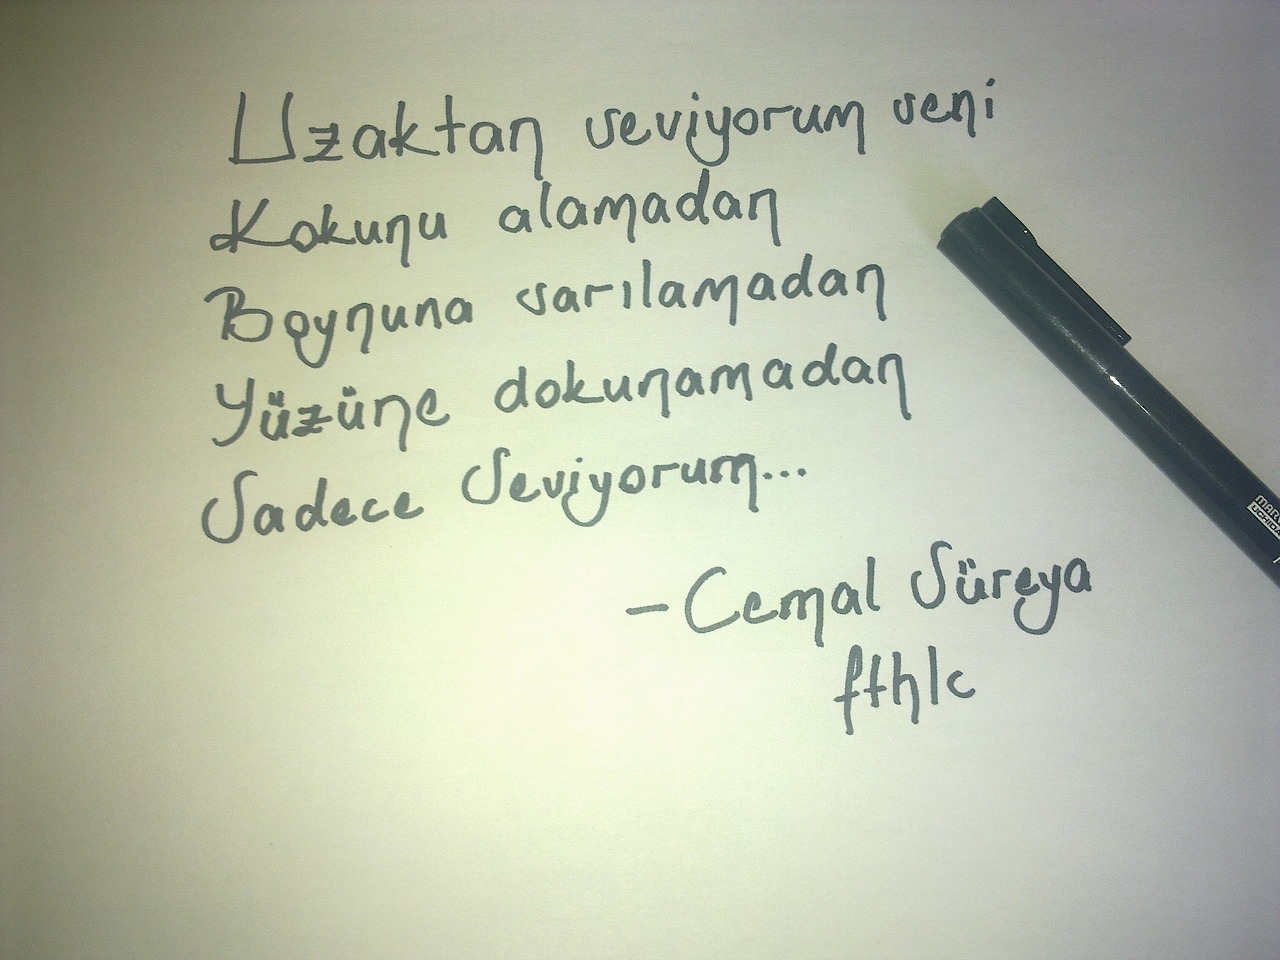 Uzaktan seviyorum seni
Kokunu alamadan
Boynuna sarılamadan
Yüzüne dokunamadan
Sadece Seviyorum...
- Cemal Süreya
fthlc
MAR
UCHIDA